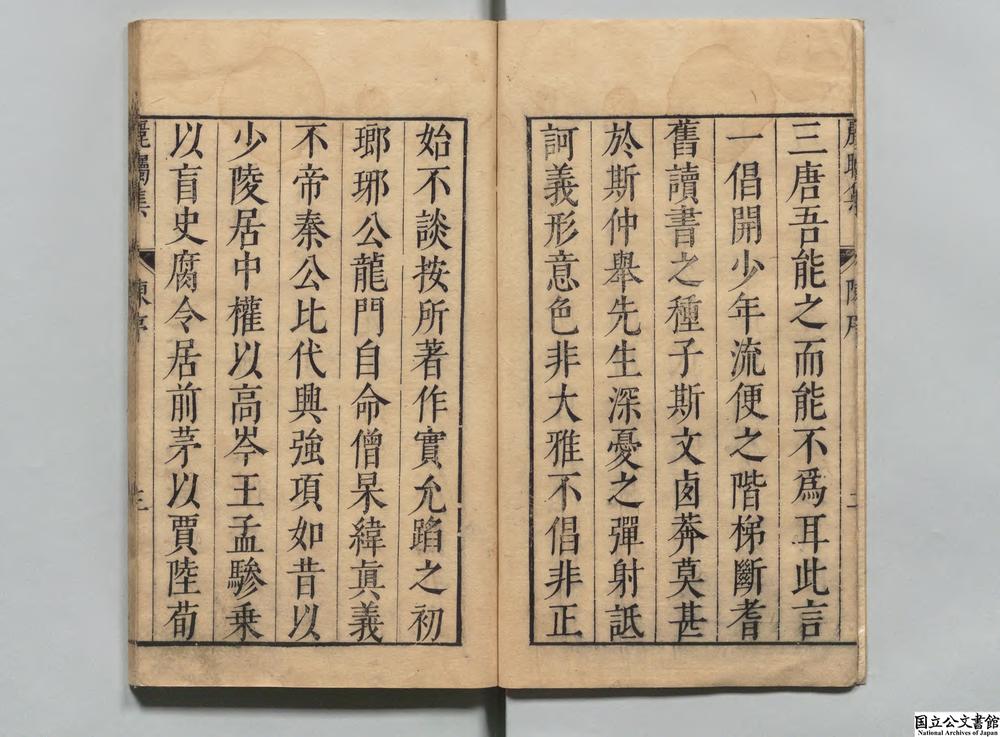 三唐吾能之而能不爲耳此言
一倡開少年流便之階梯斷耆
舊讀書之種子斯文鹵莽莫甚
於斯仲舉先生深憂之彈射詆
訶義形意色非大雅不倡非正
始不談按所著作實允蹈之初
瑯琊公龍門自命僧杲緯真義
不帝秦公比代興強項如昔以
少陵居中權以高岑王孟驂乗
以盲史腐令居前茅以賈陸荀
陳序
三
国立公文書館
National Archives of Japan